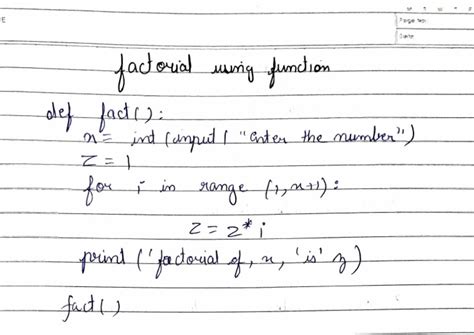 Page No.
Date
factorial using function
def fact():
x= int (input ( "Enter the number")
Z = 1
for i in range (1, x+1):
Z = Z * i
print ('factorial of, x, 'is' z)
fact()